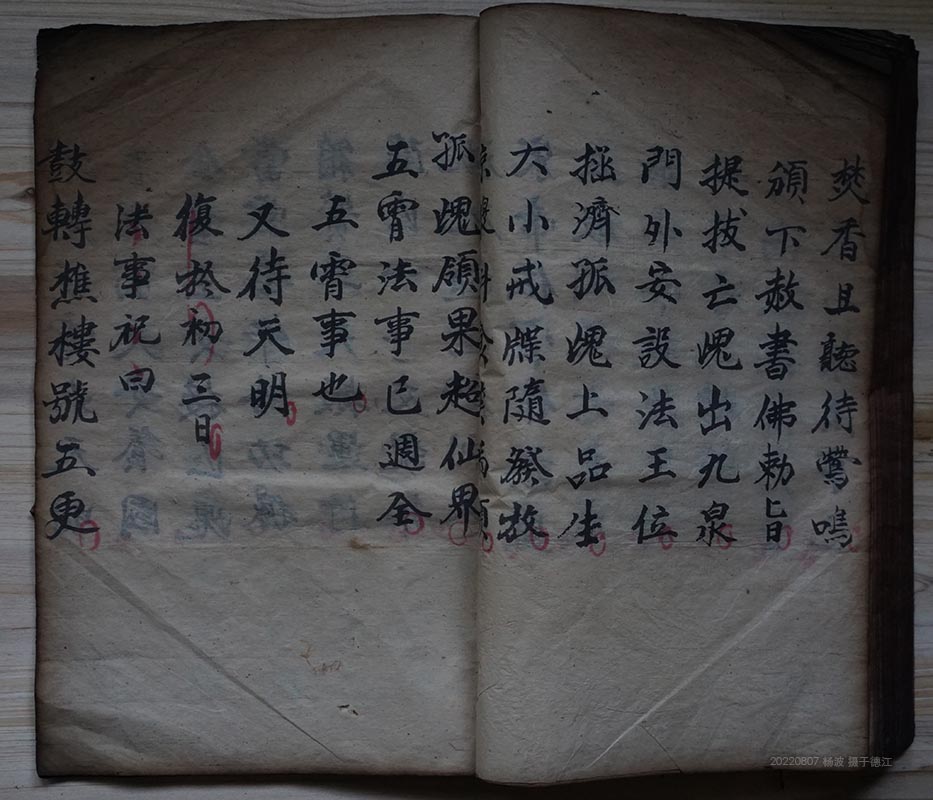 焚香且聽待鶯鳴
頒下赦書佛勅旨
提拔亡魂出九泉
門外安設法王位
拯濟孤魂上品生
大小戒牒隨發放
孤魂領果超仙界
五霄法事已週全
五霄事也
又待天明
復於初三日
法事祝曰
鼓轉樵樓號五更
20220807 杨波 摄于德江